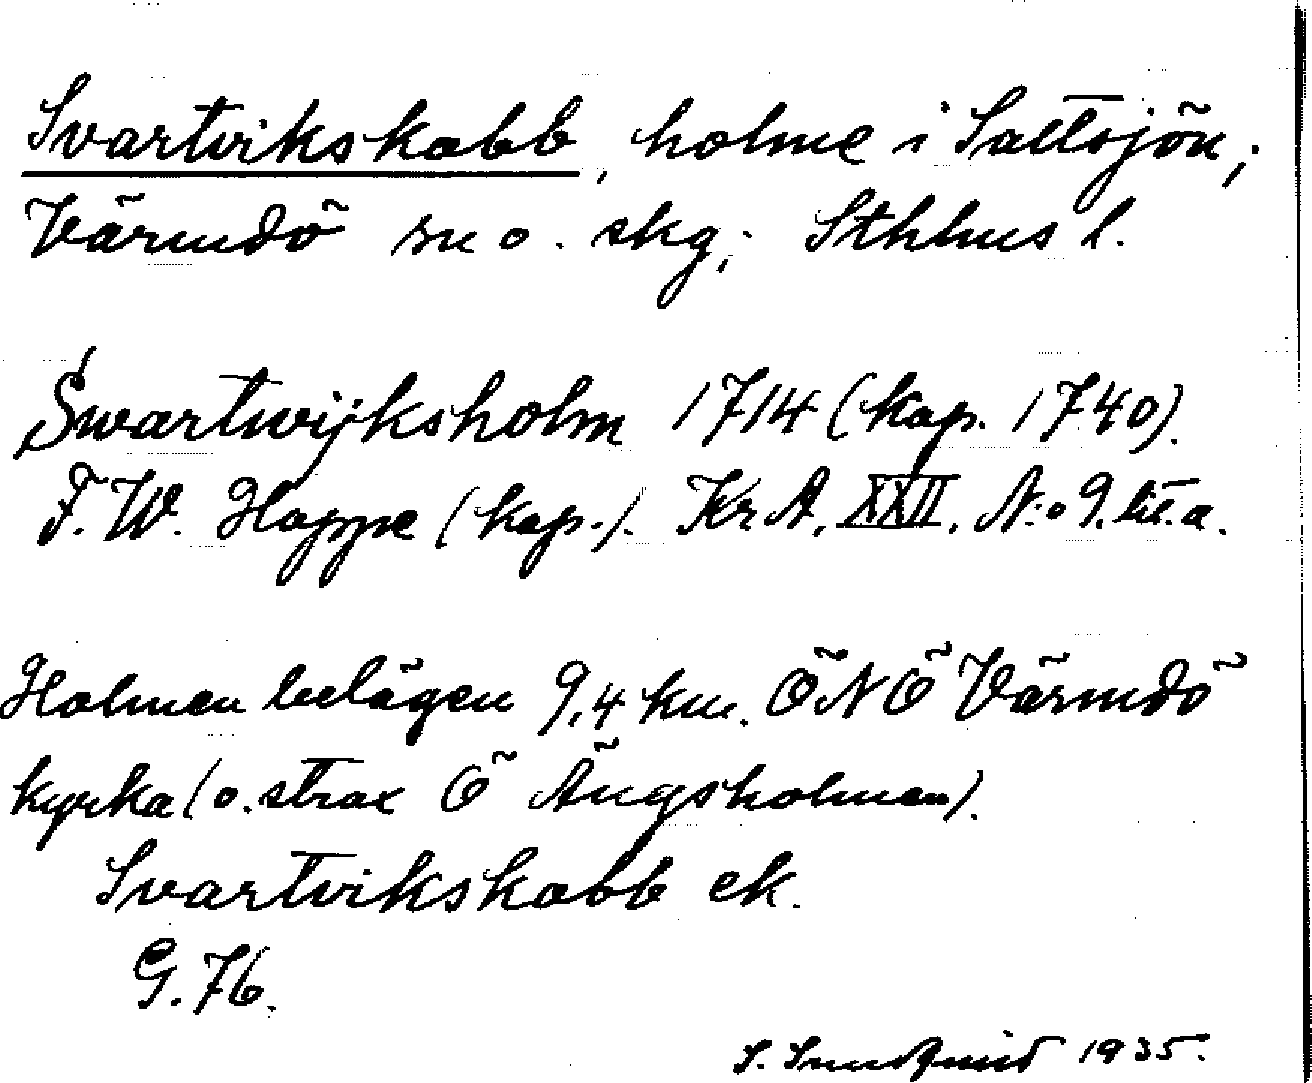 Svartvikskobb, holme i Saltsjön;
Värmdö sn o. skg; Sthlms l.
Swartwijksholm 1714 (kop. 1740).
F. W. Hoppe (kop.). KrA, XXII. N:o 9. lit. a.
Holmen belägen 9,4 km. ÖNÖ Värmdö
kyrka (o. strax Ö Ängsholmen).
Svartvikskobb ek.
G. 76.
S. Sundqvist 1935.